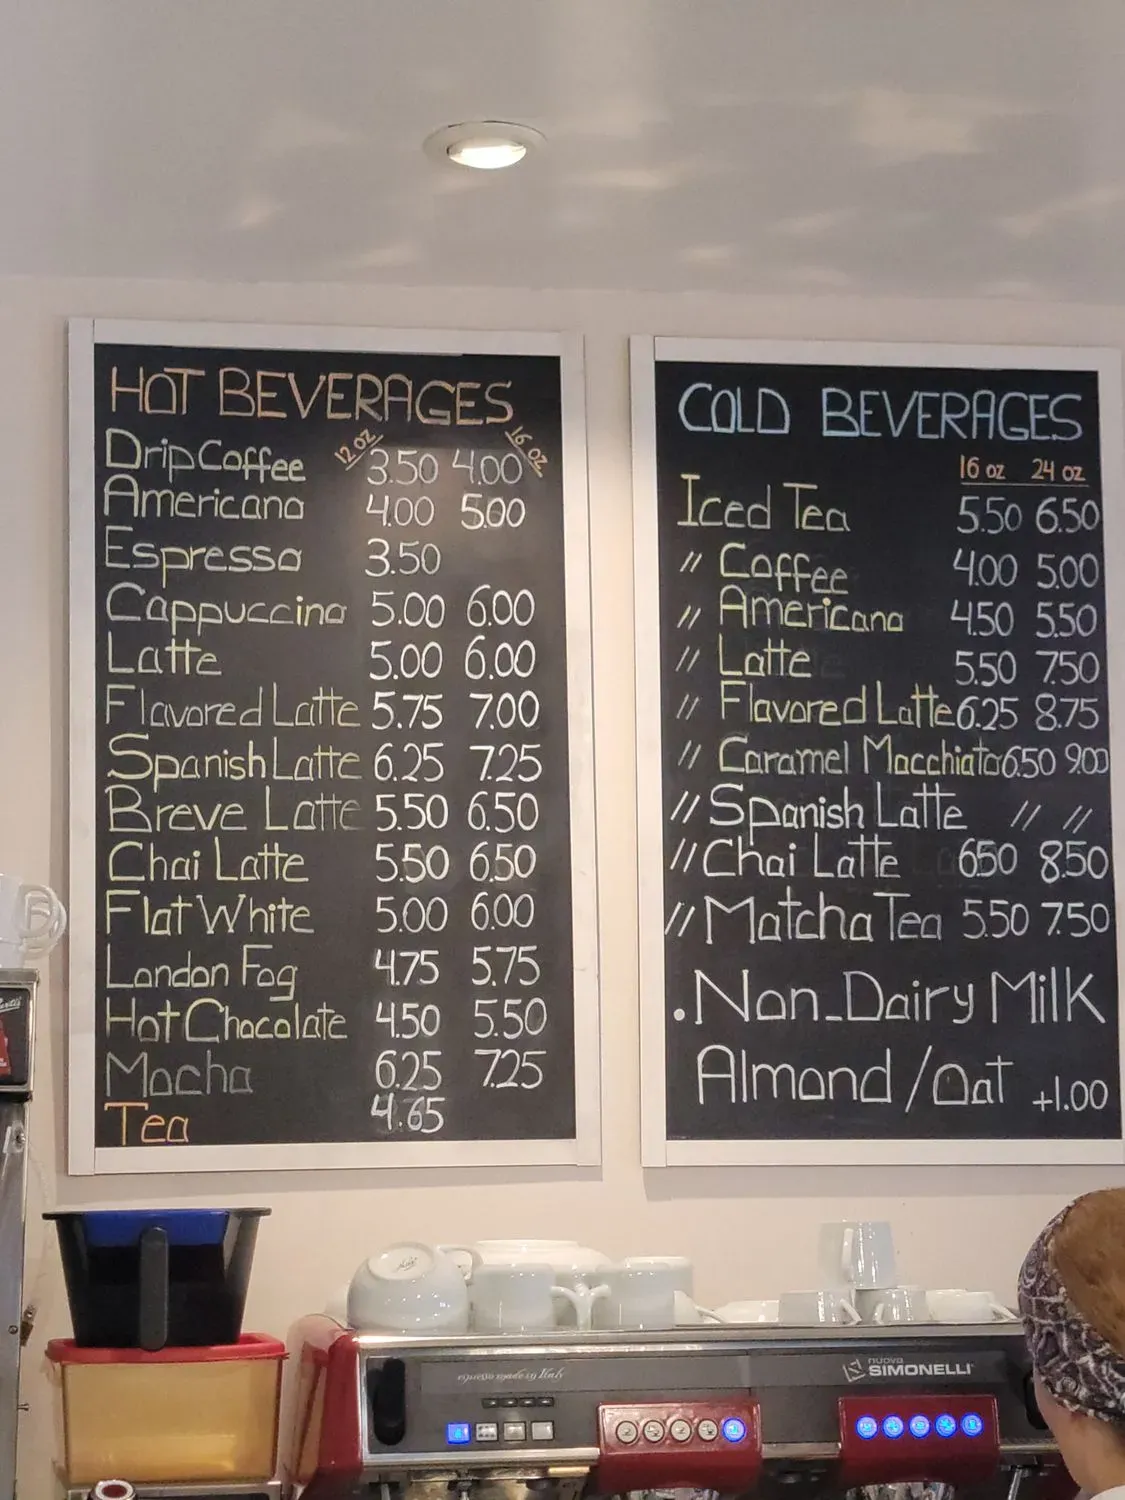 HOT BEVERAGES
12 oz 16 oz
Drip Coffee 3.50 4.00
Americano 4.00 5.00
Espresso 3.50
Cappuccino 5.00 6.00
Latte 5.00 6.00
Flavored Latte 5.75 7.00
Spanish Latte 6.25 7.25
Breve Latte 5.50 6.50
Chai Latte 5.50 6.50
Flat White 5.00 6.00
London Fog 4.75 5.75
Hot Chocolate 4.50 5.50
Mocha 6.25 7.25
Tea 4.65
COLD BEVERAGES
16 oz 24 oz
Iced Tea 5.50 6.50
// Coffee 4.00 5.00
// Americano 4.50 5.50
// Latte 5.50 7.50
// Flavored Latte 6.25 8.75
// Caramel Macchiato 6.50 9.00
// Spanish Latte // //
// Chai Latte 6.50 8.50
// Matcha Tea 5.50 7.50
. Non-Dairy Milk
Almond / Oat +1.00
espresso made in Italy
nuova
SIMONELLI